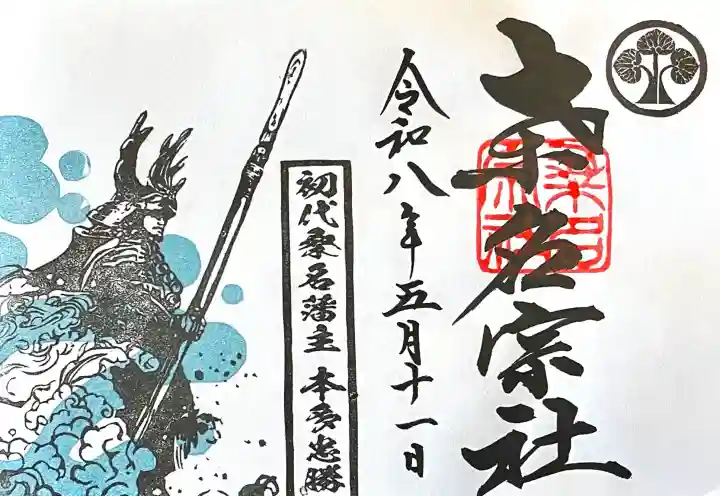 桒名宗社
令和八年五月十一日
初代桑名藩主 本多忠勝